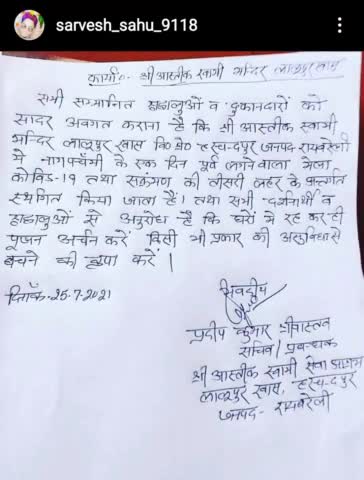 sarvesh_sahu_9118
कार्या०- श्री आस्तीक स्वामी मन्दिर लालूपुर खास
सभी सम्मानित श्रद्धालुओं व दुकानदारों को
सादर अवगत कराना है कि श्री आस्तीक स्वामी
मन्दिर लालूपुर खास वि० ख०
जनपद रायबरेली
में नागपंचमी के एक दिन पूर्व लगने वाला मेला
कोविड-19 तथा संक्रमण की तीसरी लहर के अन्तर्गत
स्थगित किया जाता है। तथा सभी दर्शनार्थी व
श्रद्धालुओं से अनुरोध है कि घरों में रह कर ही
पूजन अर्चन करें किसी भी प्रकार की असुविधा से
बचने की कृपा करें।
दिनाँक-25-7-2021
प्रदीप कुमार श्रीवास्तव
सचिव/प्रबन्धक
श्री आस्तीक स्वामी सेवा आश्रम
लालूपुर खास,
जनपद- रायबरेली